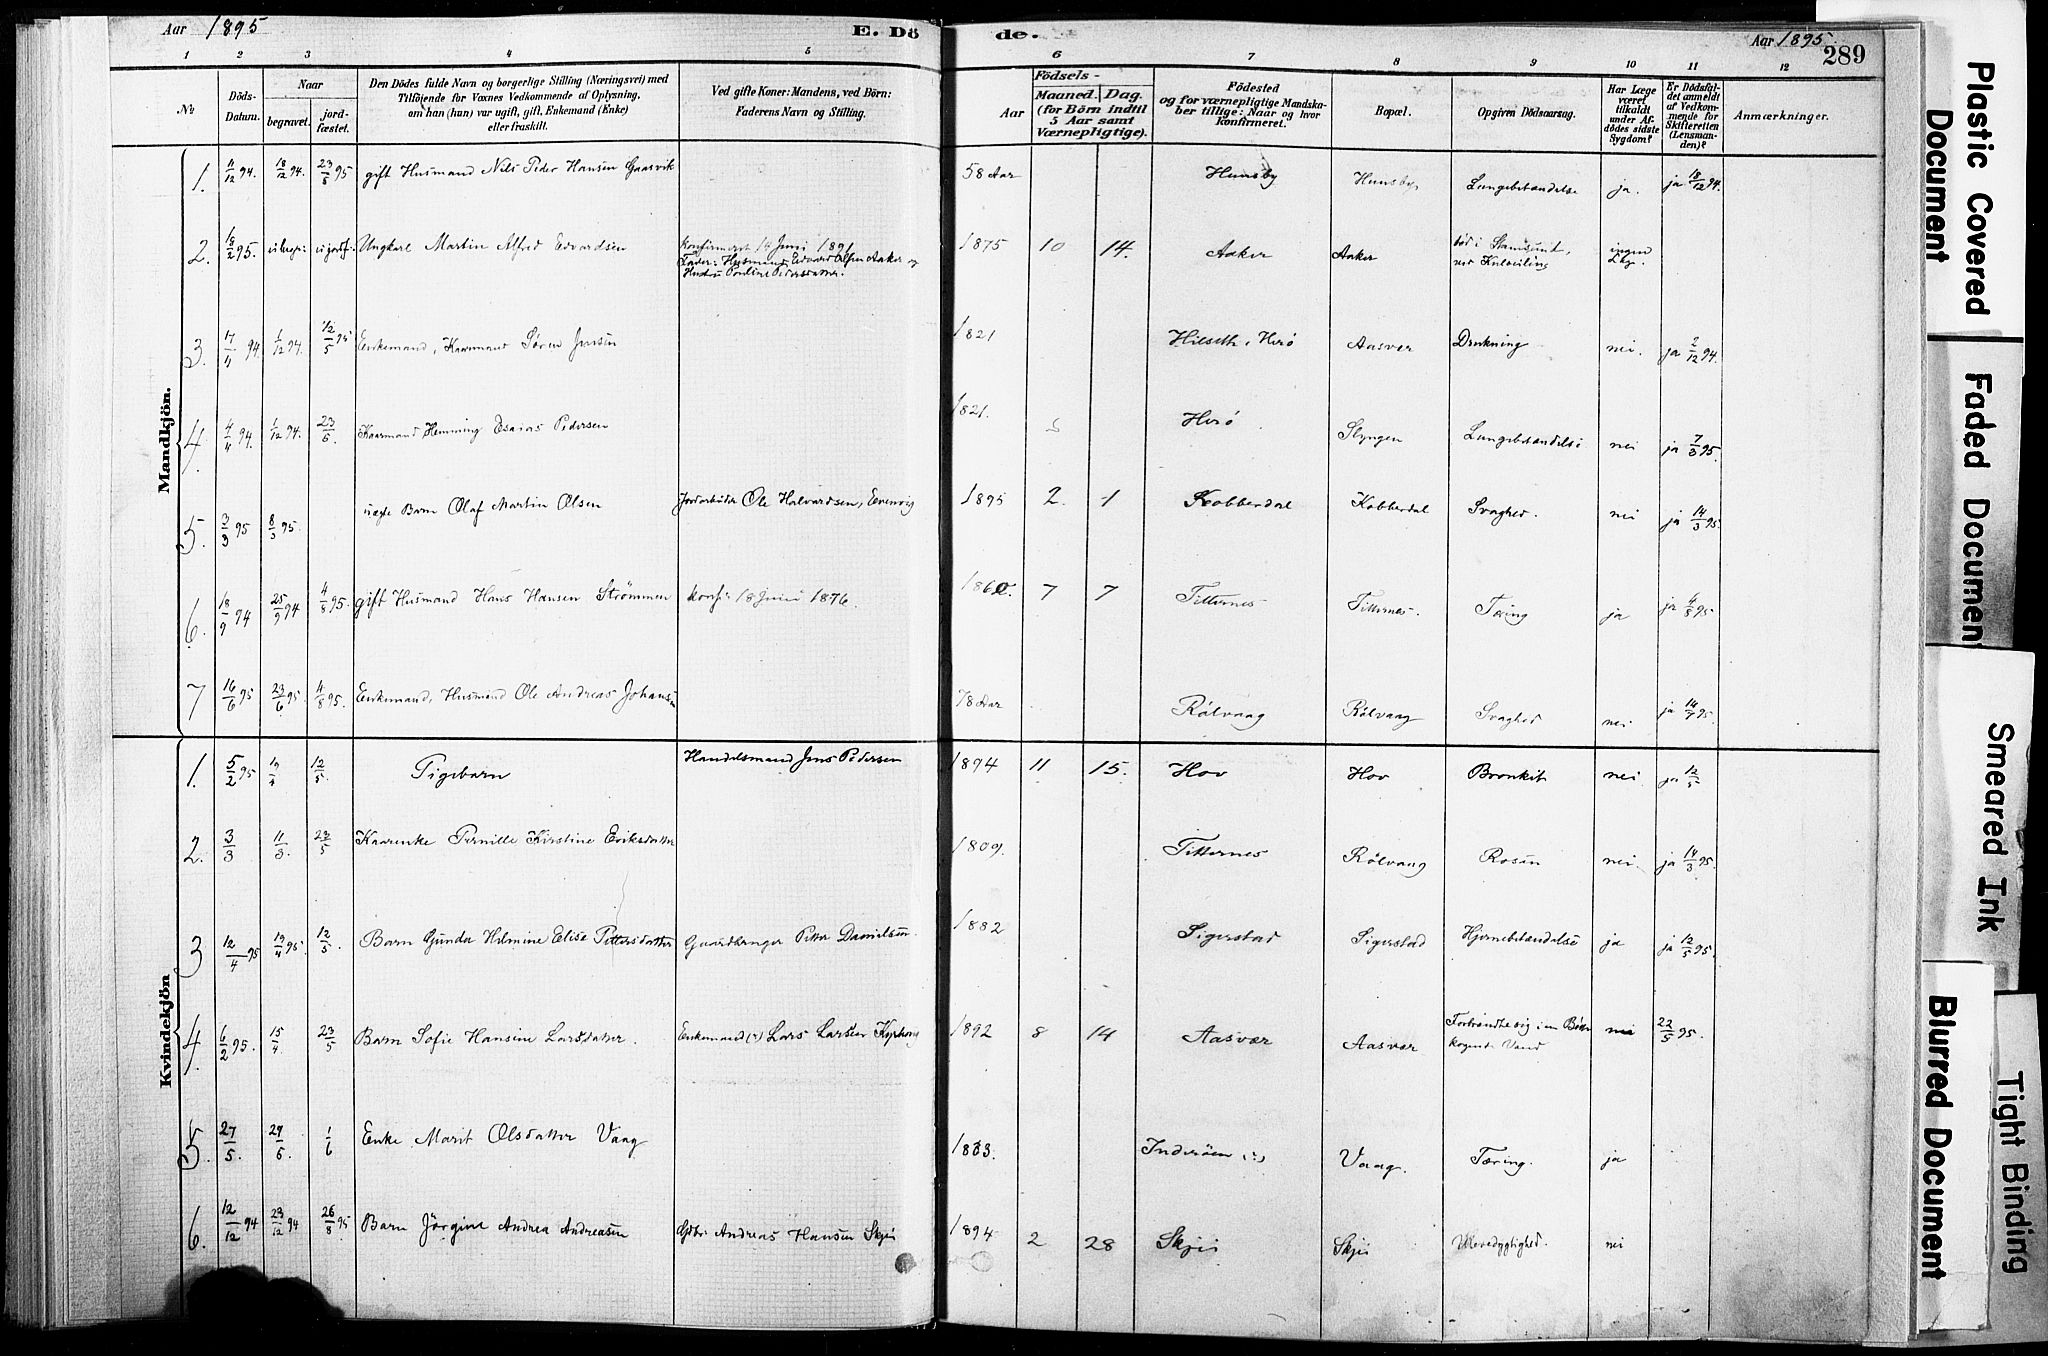 Aar 1895
E. Döde.
Aar 1895.
289
1 2 3 4 5 6 7 8 9 10 11 12
№
Döds-Datum.
Naar
begravet.
jord-fæstet.
Den Dödes fulde Navn og borgerlige Stilling (Næringsvei) med
Tilföiende for Voxnes Vedkommende af Oplysning,
om han (hun) var ugift, gift, Enkemand (Enke)
eller fraskilt.
Ved gifte Koner: Mandens, ved Börn:
Faderens Navn og Stilling.
Födsels-
Aar
Maaned. Dag.
(for Börn indtil
5 Aar samt
Værnepligtige).
Födested
og for værnepligtige Mandska-
ber tillige: Naar og hvor
Konfirmeret.
Bopæl.
Opgiven Dödsaarsag.
Har Læge
været
tilkaldt
under Af-
dödes sidste
Sygdom?
Er Dödsfal-
det anmeldt
af Vedkom-
mende for
Skifteretten
(Lensman-
den)?
Anmærkninger.
Mandkjön.
1. 11/12 94. 18/12 94. 23/5 95 gift Husmand Nils Peder Hansen Gaasvik 58 Aar Hunsby Hunsby Lungebetændelse ja. ja 18/12 94.
2. 18/2 95. Ungkarl Martin Alfred Edvardsen konfirmeret 14 Juni 1891 1875 10 14. Aaker Aaker död i Stamsund, ingen
Fader: Husmand Edvard Olsen Aaker og
Hustru Pauline Pedersdatter.
3. 17/4 94. 1/12 94. 12/5 95 Enkemand, Kaarmand Sören Jensen 1821 Hilseth, Herö Aasvær Drukning nei. ja 2/12 94.
4. 4/4 94. 1/12 94. 23/5. Kaarmand Hemming Esaias Pedersen 1821. Herö Slyngen Lungebetændelse nei ja 7/3 95.
5. 3/3 95 8/3 95. uægte Barn Olaf Martin Olsen Jordarbeider Ole Halvardsen, Evenvig 1895 2. 1 Kobberdal Kobberdal Svaghed. nei ja 14/3 95.
6. 18/9 94 25/9 94 4/8 95. gift Husmand Hans Hansen Strömmen konf: 18 Juni 1876. 1860. 7 7 Titternes Titternes. Tæring ja ja 4/8 95
7 16/6 95 23/6 95. 4/8 95. Enkemand, Husmand Ole Andreas Johansen 78 Aar Rölvaag Rölvaag Svaghed nei ja 14/7 95.
Kvindekjön
1. 5/2 95 19/4 12/5. Pigebarn Handelsmand Jens Pedersen 1894 11 15. Hov Hov Bronkit nei ja 12/5
2. 3/3 11/3. 23/5 Kaarenke Pernille Kirstine Eriksdatter 1809. Titternes Rölvaag Rosen nei. ja 14/3 95.
3 12/4 95 19/4 95. 12/5. Barn Gunda Hilmine Elise Pettersdatter Gaardbruger Petter Danielsen. 1882 Sigerstad Sigerstad Hjernebetændelse ja ja 12/5 95.
4. 6/2 95. 15/4. 23/5 Barn Sofie Hansine Larsdatter. Enkemand (?) Lars Larsen 1892 8 14 Aasvær Aasvær Forbrændte sig i en Bötte nei 22/5 95.
kogende Vand
5. 27/5. 29/5. 1/6 Enke Marit Olsdatter Vaag 1833. Inderöen (?) Vaag. Tæring. ja
6. 12/12 94 23/12 94 26/8 95 Barn Jörgine Andrea Andreasen Gbr: Andreas Hansen Skjei 1894 2 28 Skjei Skjei Ulevedygtighed. nei
Plastic Covered Document
Faded Document
Smeared Ink
Tight Binding
Blurred Document